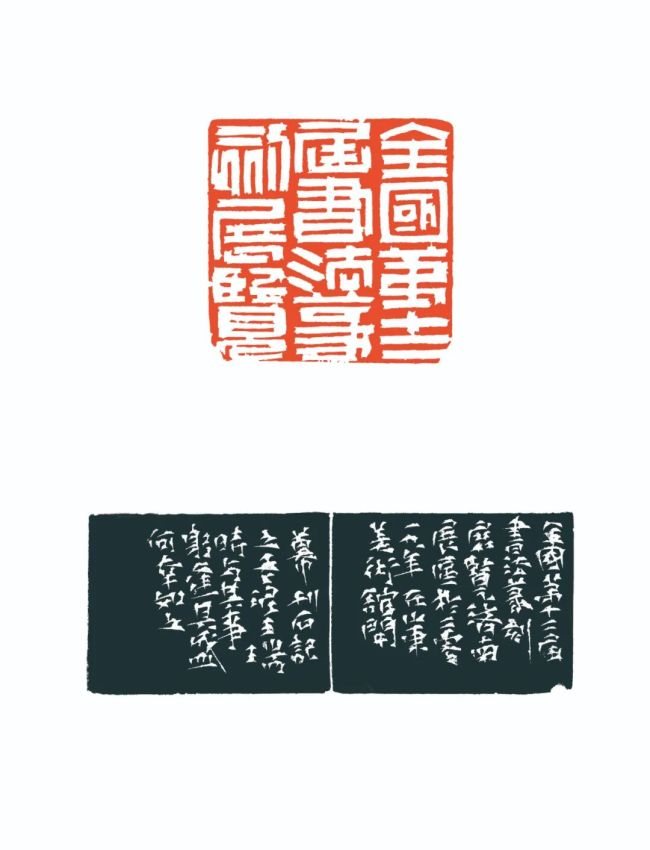 全國第十二
屆書法篆
刻展覽
全國第十二屆
書法篆刻
展覽之濟南
展區於二零
一九年在山東
美術館開
幕刊石記
之吾
時與其事
躬逢其盛
何幸如之